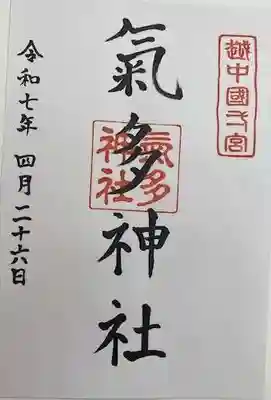 越中國弌宮
氣多神社
氣多神社
令和七年 四月二十六日